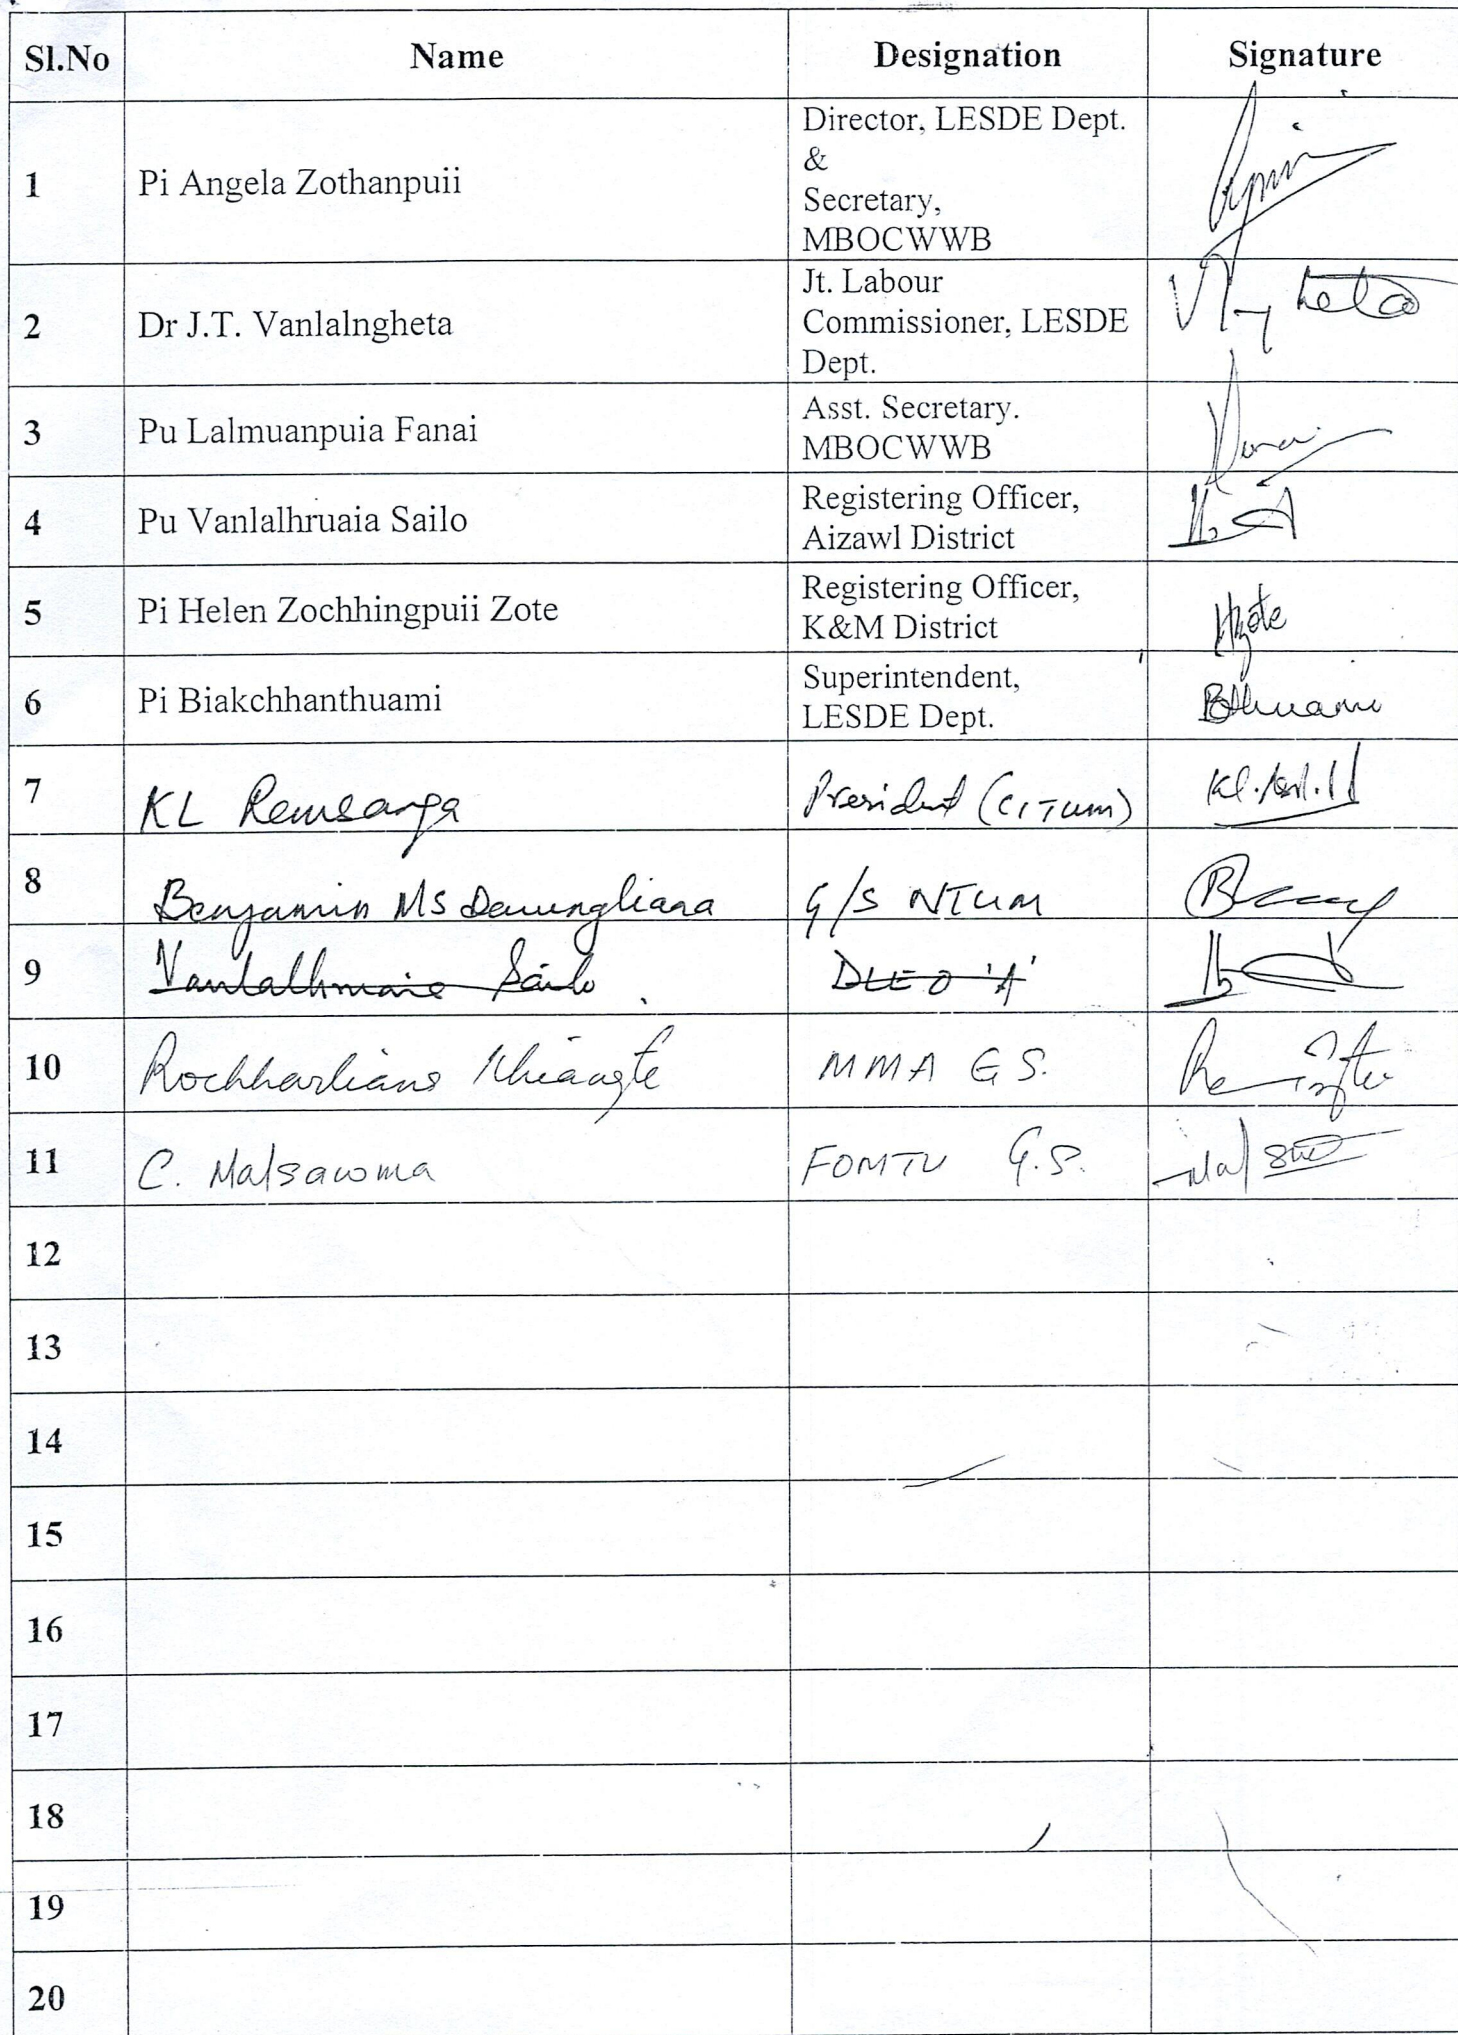 Sl.No Name Designation Signature
1 Pi Angela Zothanpuii Director, LESDE Dept.
&
Secretary,
MBOCWWB
2 Dr J.T. Vanlalngheta Jt. Labour
Commissioner, LESDE
Dept.
3 Pu Lalmuanpuia Fanai Asst. Secretary.
MBOCWWB
4 Pu Vanlalhruaia Sailo Registering Officer,
Aizawl District
5 Pi Helen Zochhingpuii Zote Registering Officer,
K&M District Hzote
6 Pi Biakchhanthuami Superintendent,
LESDE Dept. Bthuami
7 KL Remsanga President (CITUM)
8 Benjamin MS Dawngliana G/S NTUM
9 Vanlalhruaia Sailo DLEO 'A'
10 Rochharliana Khiangte MMA G S.
11 C. Malsawma FOMTU G.S.
12
13
14
15
16
17
18
19
20